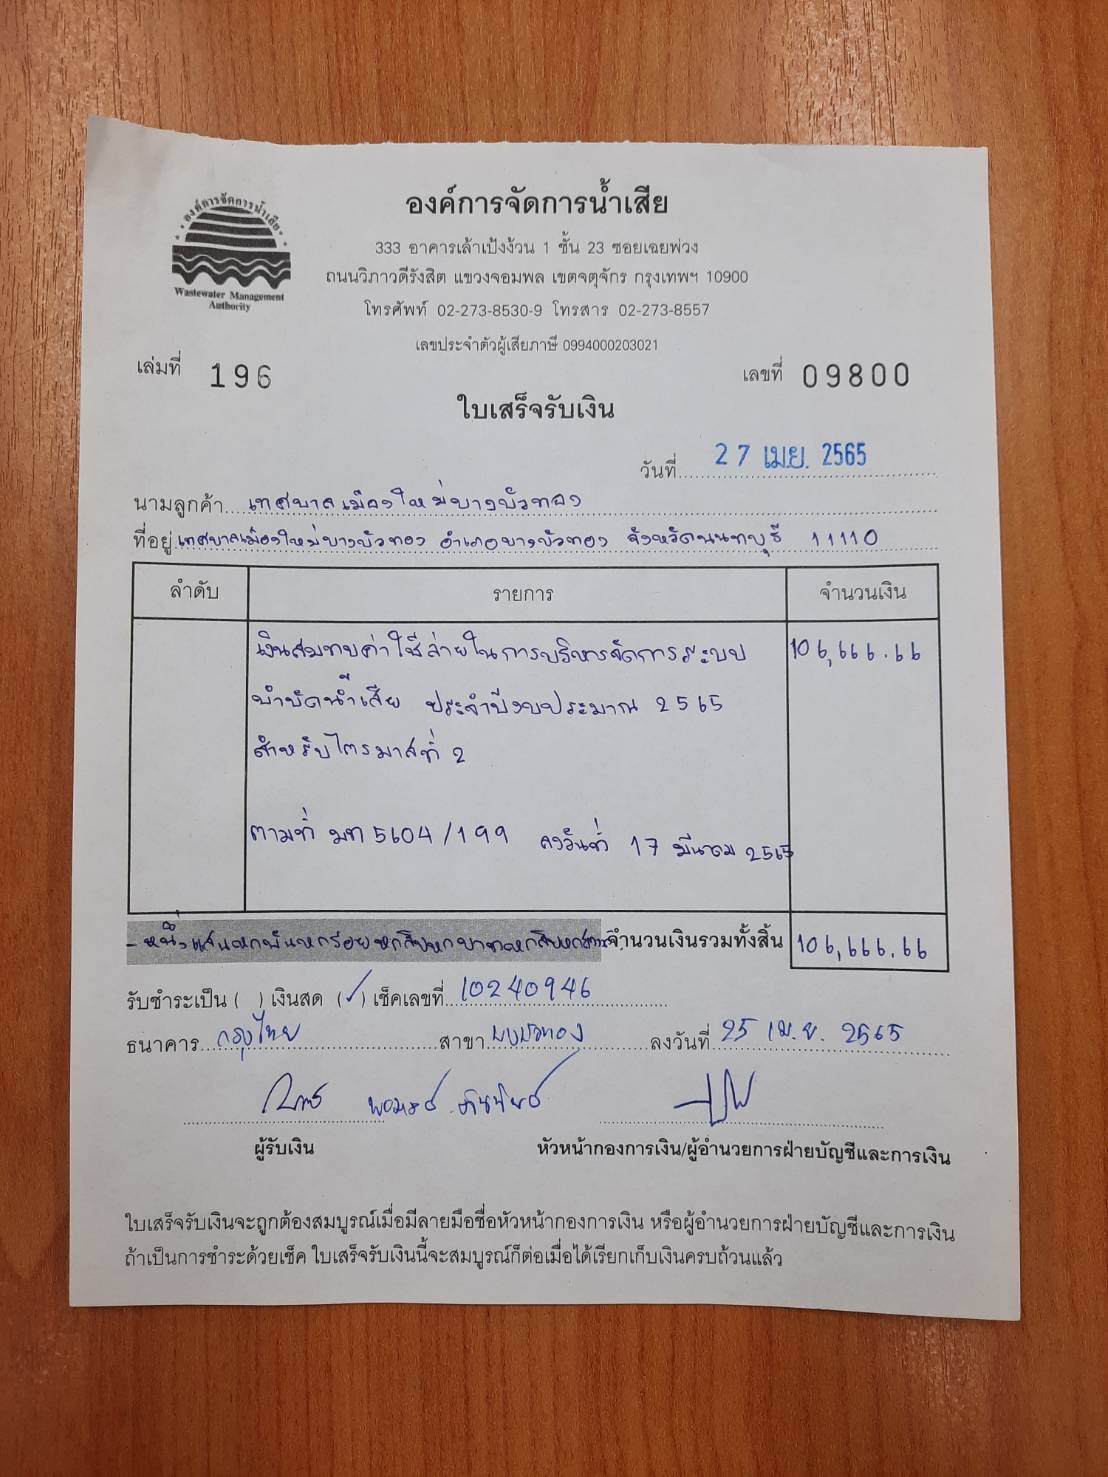 องค์การจัดการน้ำเสีย
องค์การจัดการน้ำเสีย
333 อาคารเล้าเป้งง้วน 1 ชั้น 23 ซอยเฉยพ่วง
ถนนวิภาวดีรังสิต แขวงจอมพล เขตจตุจักร กรุงเทพฯ 10900
Wastewater Management
Authority
โทรศัพท์ 02-273-8530-9 โทรสาร 02-273-8557
เลขประจำตัวผู้เสียภาษี 0994000203021
เล่มที่ 196 เลขที่ 09800
ใบเสร็จรับเงิน
วันที่ 27 เม.ย. 2565
นามลูกค้า เทศบาลเมืองใหม่บางบัวทอง
ที่อยู่ เทศบาลเมืองใหม่บางบัวทอง อำเภอบางบัวทอง จังหวัดนนทบุรี 11110
ลำดับ รายการ จำนวนเงิน
เงินสมทบค่าใช้จ่ายในการบริหารจัดการระบบ 106,666.66
บำบัดน้ำเสีย ประจำปีงบประมาณ 2565
สำหรับไตรมาสที่ 2
ตามที่ มท 5604/199 ลงวันที่ 17 มีนาคม 2565
-หนึ่งแสนหกพันหกร้อยหกสิบหกบาทหกสิบหกสตางค์- จำนวนเงินรวมทั้งสิ้น 106,666.66
รับชำระเป็น ( ) เงินสด (✓) เช็คเลขที่ 10240946
ธนาคาร กรุงไทย สาขา บางบัวทอง ลงวันที่ 25 เม.ย. 2565
ผู้รับเงิน หัวหน้ากองการเงิน/ผู้อำนวยการฝ่ายบัญชีและการเงิน
ใบเสร็จรับเงินจะถูกต้องสมบูรณ์เมื่อมีลายมือชื่อหัวหน้ากองการเงิน หรือผู้อำนวยการฝ่ายบัญชีและการเงิน
ถ้าเป็นการชำระด้วยเช็ค ใบเสร็จรับเงินนี้จะสมบูรณ์ก็ต่อเมื่อได้เรียกเก็บเงินครบถ้วนแล้ว